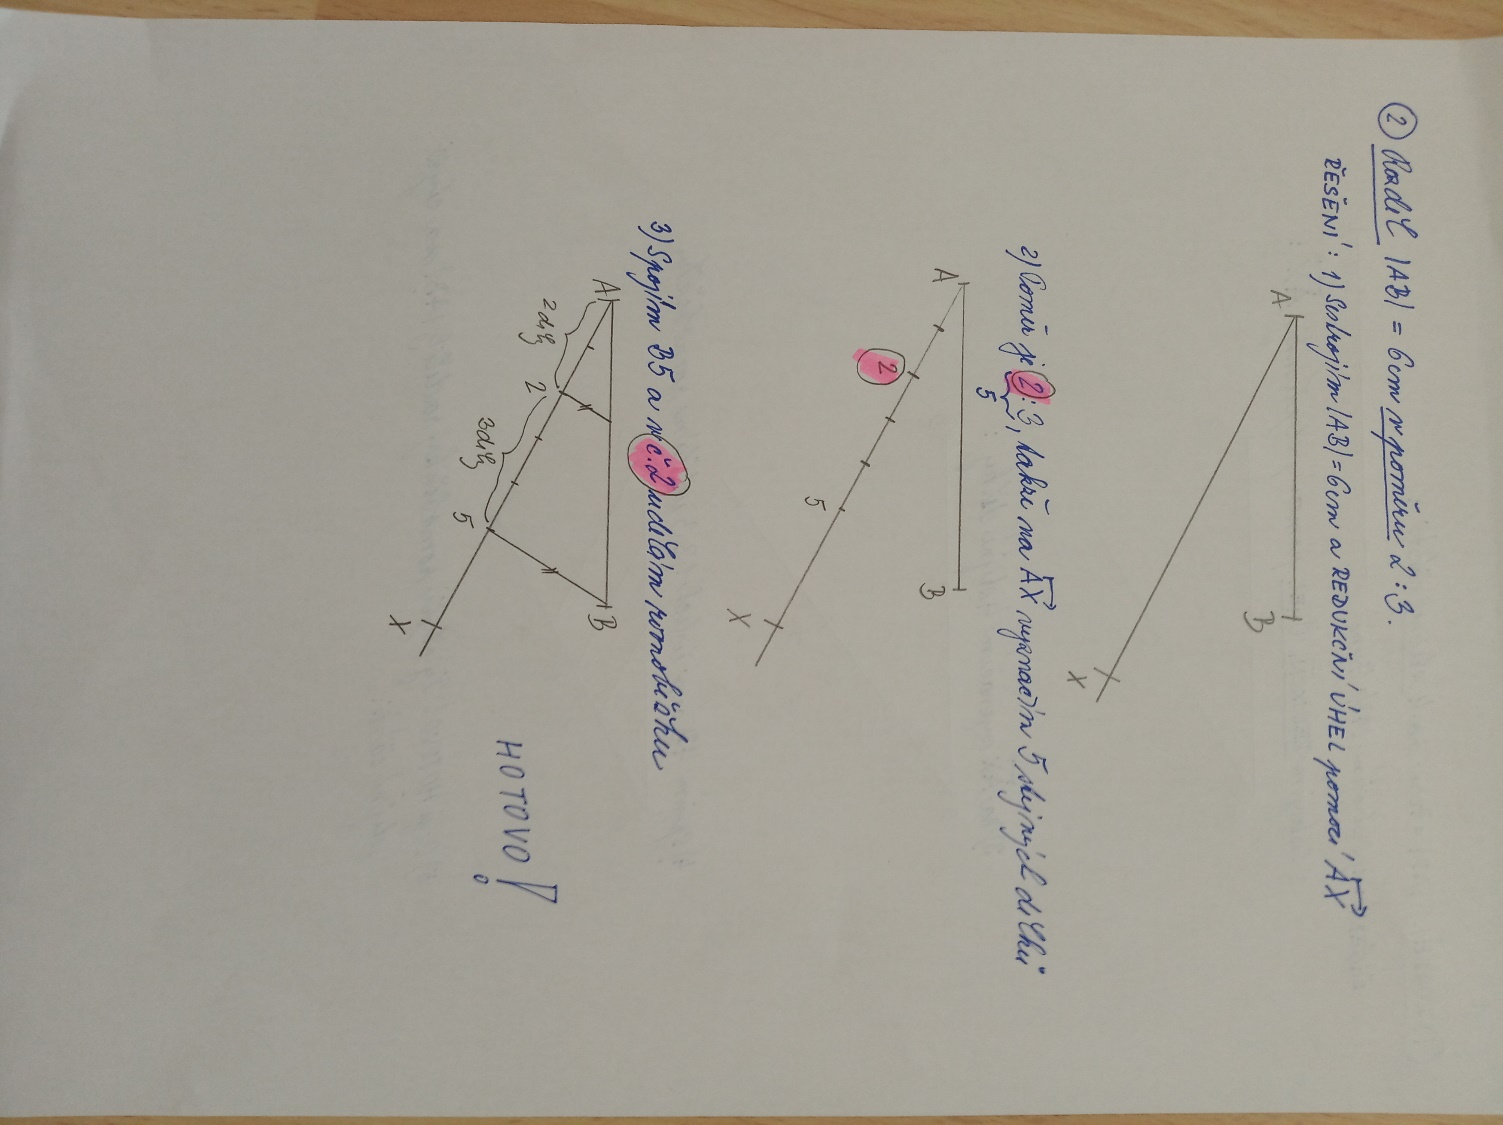 ② Rozděl |AB| = 6cm v poměru 2:3.
ŘEŠENÍ: 1) Sestrojím |AB| = 6cm a REDUKČNÍ ÚHEL pomocí AX
A B
X
2) Poměr je 2:3, takže na AX vyznačím 5 stejných dílků
5
A B
2
5
X
3) Spojím B5 a v č.2 udělám rovnoběžku
A B
2díly 2
3díly 5
X
HOTOVO!